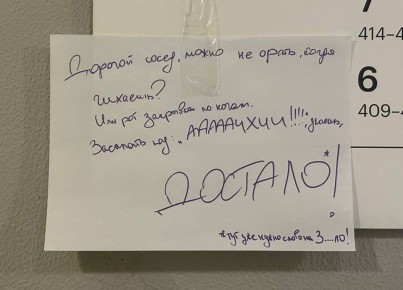 Дорогой сосед, можно не орать, когда
чихаешь?
Или рот закрывай по ночам.
Засыпать под: „АААААЧХИИ!!!!",
ДОСТАЛО*!
*тут уже нужно слово на З....ЛО!
7
414-4
6
409-4